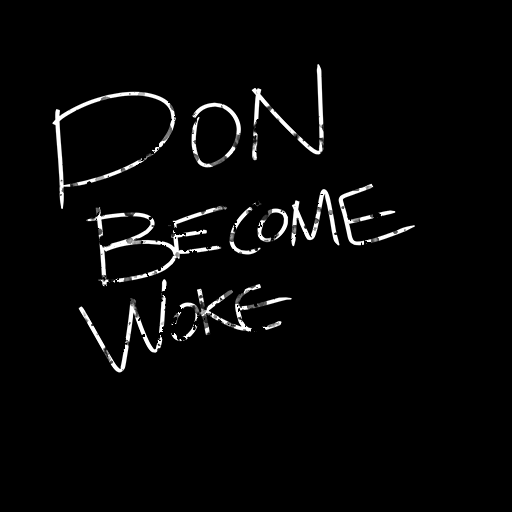 DON
BECOME
WOKE